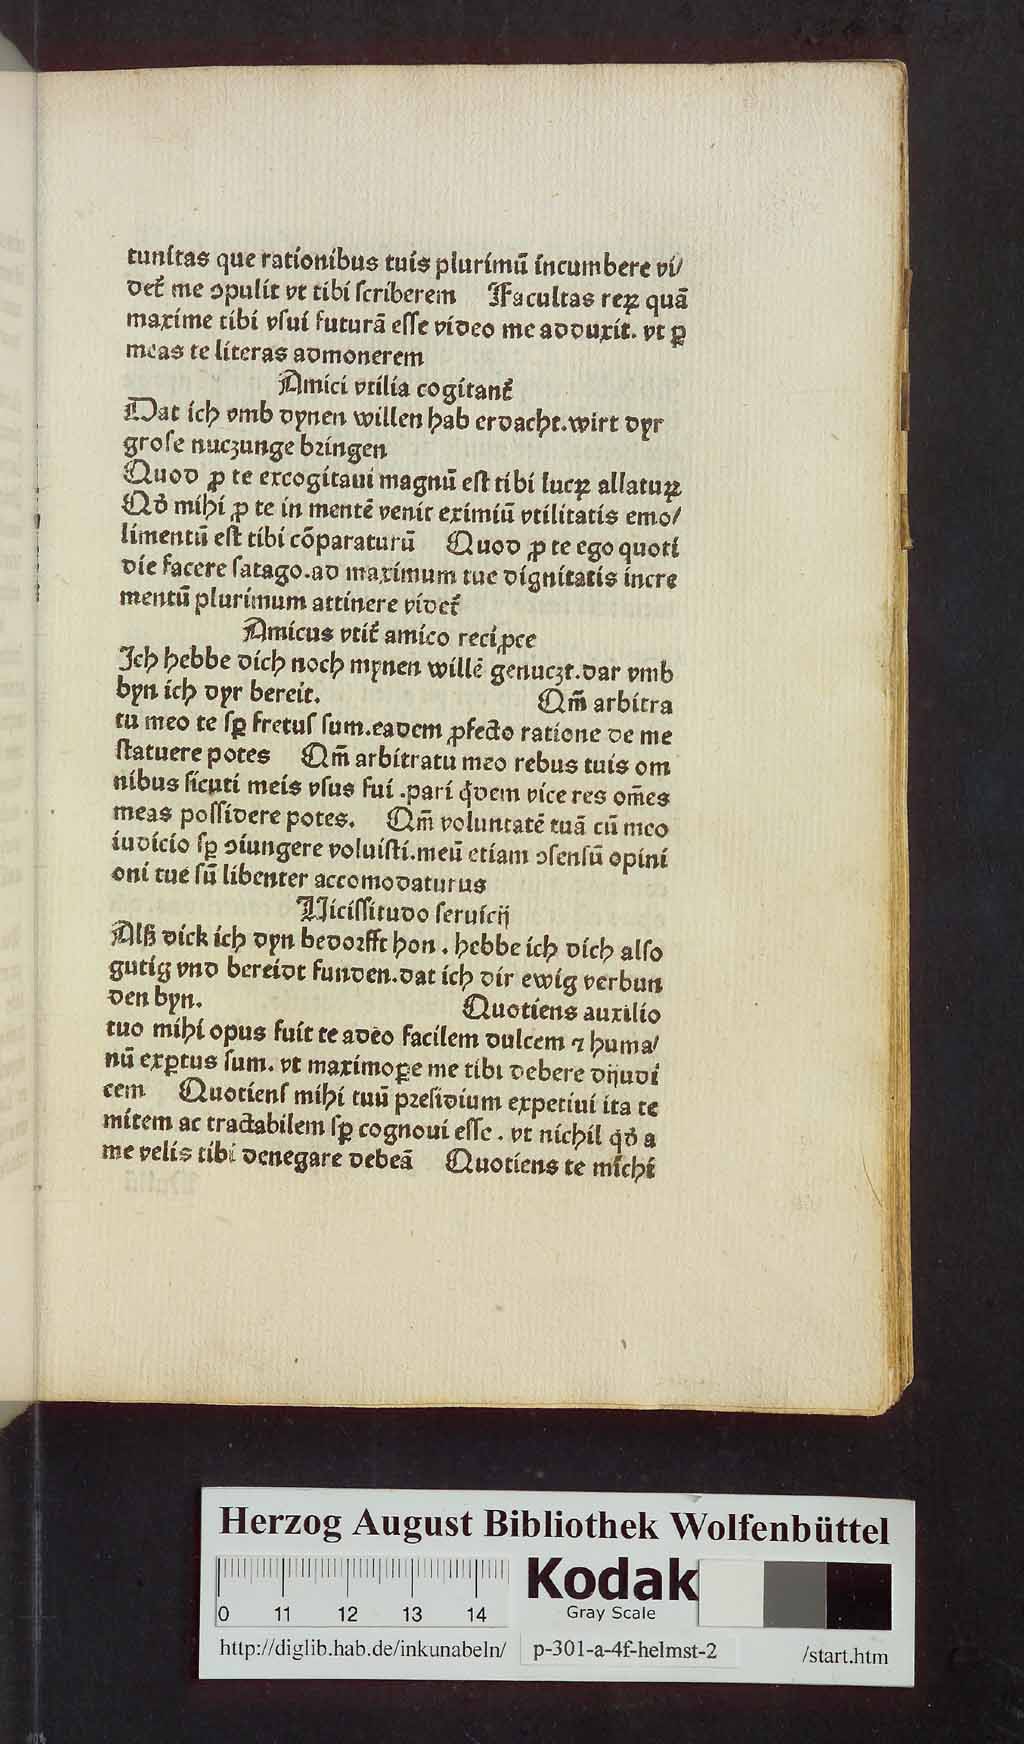 tunitas que rationibus tuis plurimū incumbere vi/
det᷑ me ↄpulit vt tibi scriberem Facultas reꝝ quā
maxime tibi vsui futurā esse video me adduxit. vt ꝑ
meas te literas admonerem
Amici vtilia cogitant᷑
Dat ich vmb dynen willen hab erdacht. wirt dyr
grose nuczunge bringen
Quod ꝓ te excogitaui magnū est tibi lucꝝ allatuꝝ
Qd̕ mihi ꝓ te in mentē venit eximiū vtilitatis emo/
limentū est tibi cōparaturū Quod ꝓ te ego quoti
die facere satago. ad maximum tue dignitatis incre
mentū plurimum attinere videt᷑
Amicus vtit᷑ amico reciꝓce
Ich hebbe dich noch mynen willē genuczt. dar vmb
byn ich dyr bereit. Qm̄ arbitra
tu meo te sꝑ fretus sum. eadem ꝓfecto ratione de me
statuere potes Qm̄ arbitratu meo rebus tuis om
nibus sicuti meis vsus fui . pari qͥdem vice res om̄es
meas possidere potes. Qm̄ voluntatē tuā cū meo
iudicio sꝑ ↄiungere voluisti. meū etiam ↄsensū opini
oni tue sū libenter accomodaturus
Vicissitudo seruicij
Alß dick ich dyn bedorfft hon . hebbe ich dich also
gutig vnd bereidt funden. dat ich dir ewig verbun
den byn. Quotiens auxilio
tuo mihi opus fuit te adeo facilem dulcem ⁊ huma/
nū exꝑtus sum. vt maximoꝑe me tibi debere dijudi
cem Quotiens mihi tuū presidium expetiui ita te
mitem ac tractabilem sꝑ cognoui esse . vt nichil qd̕ a
me velis tibi denegare debeā Quotiens te michi
Herzog August Bibliothek Wolfenbüttel
0 11 12 13 14
Kodak
Gray Scale
http://diglib.hab.de/inkunabeln/ p-301-a-4f-helmst-2 /start.htm